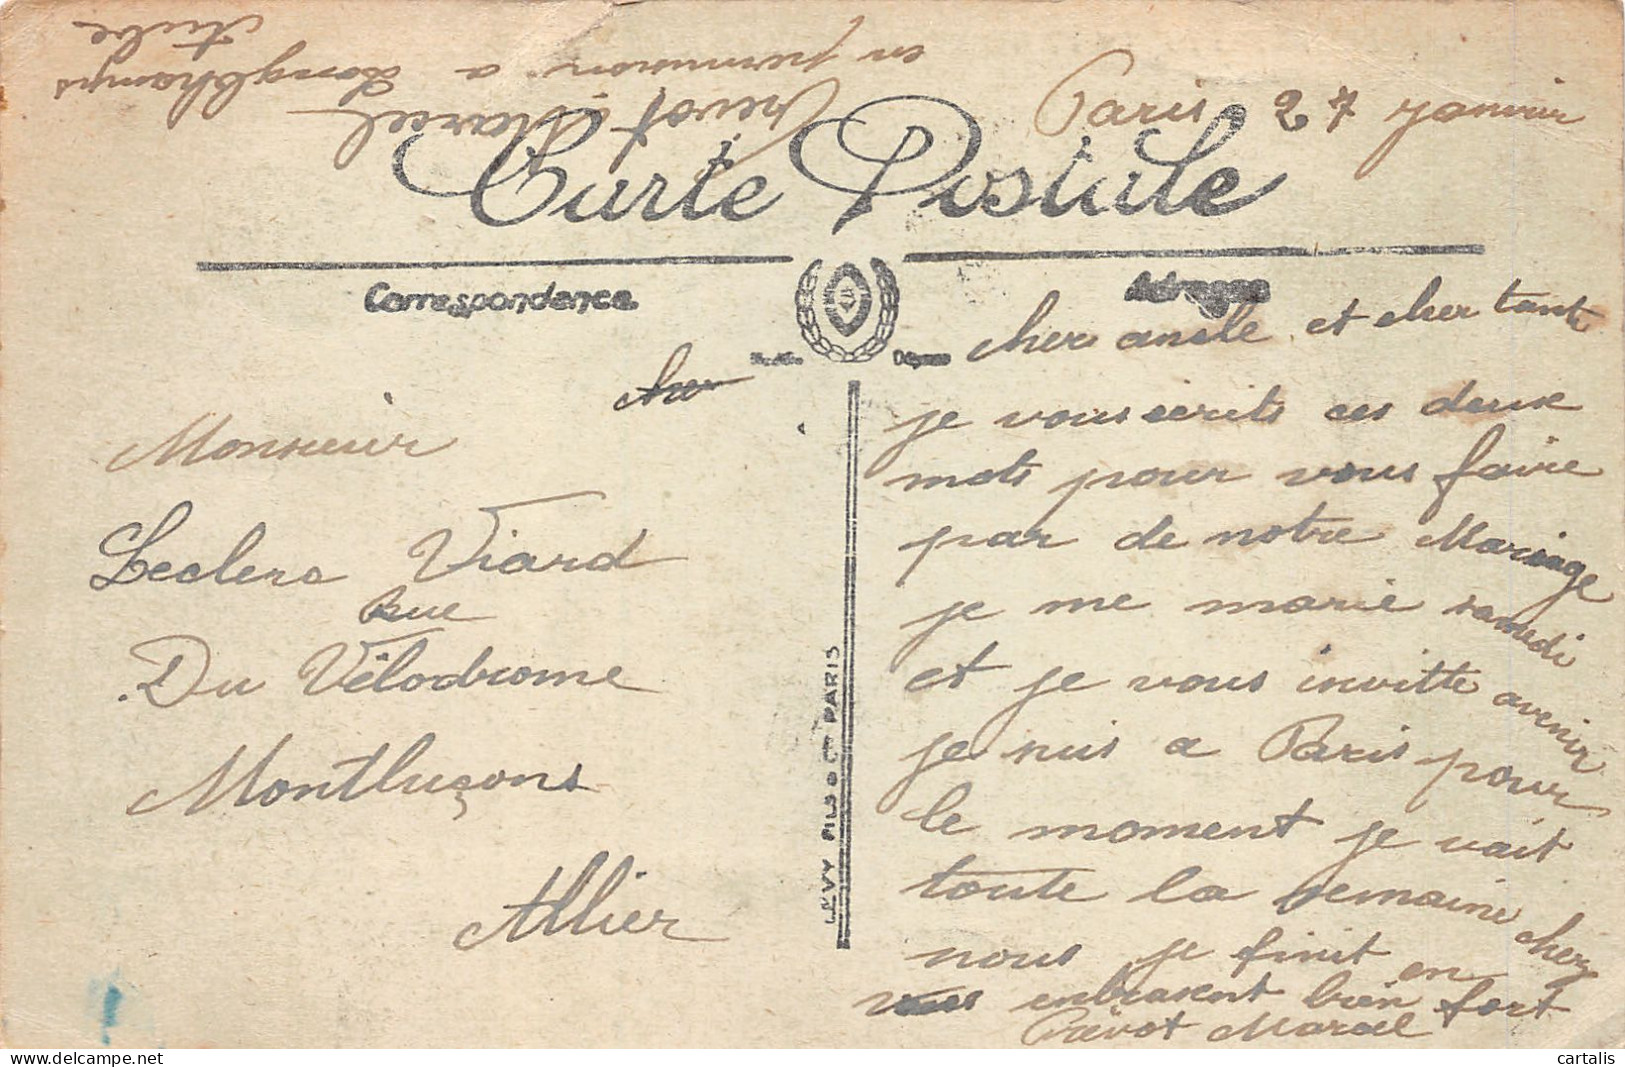 Prevot Marcel
en permission a Longchamps
Aube
Paris 27 Janvier
Carte Postale
Correspondance
Adresse
cher oncle et cher tante
je vous ecrits ces deux
mots pour vous faire
par de notre Mariage
je me marie samedi
et je vous invitte avenir
je suis a Paris pour
le moment je vait
toute la semaine chez
nous je finit en
vous enbrasent bien fort
Prevot Marcel
Monsieur
Leclerc Viard
Rue
Du Vélodrome
Montluçons
Allier
LEVY FILS & Cie PARIS
cartalis